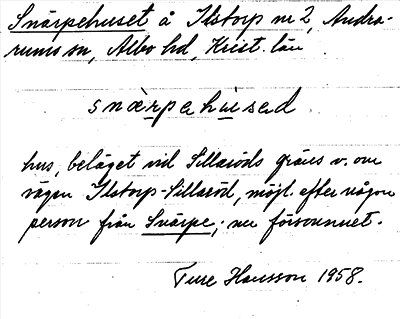 Snärpehuset å Ilstorp nr 2, Andra-
rums sn, Albo hd, Krist. län
snærpehused
hus, beläget vid Sillaröds gräns v. om
vägen Ilstorp-Sillaröd, möjl. efter någon
person från Snärpe; nu försvunnet.
Ture Hansson 1958.